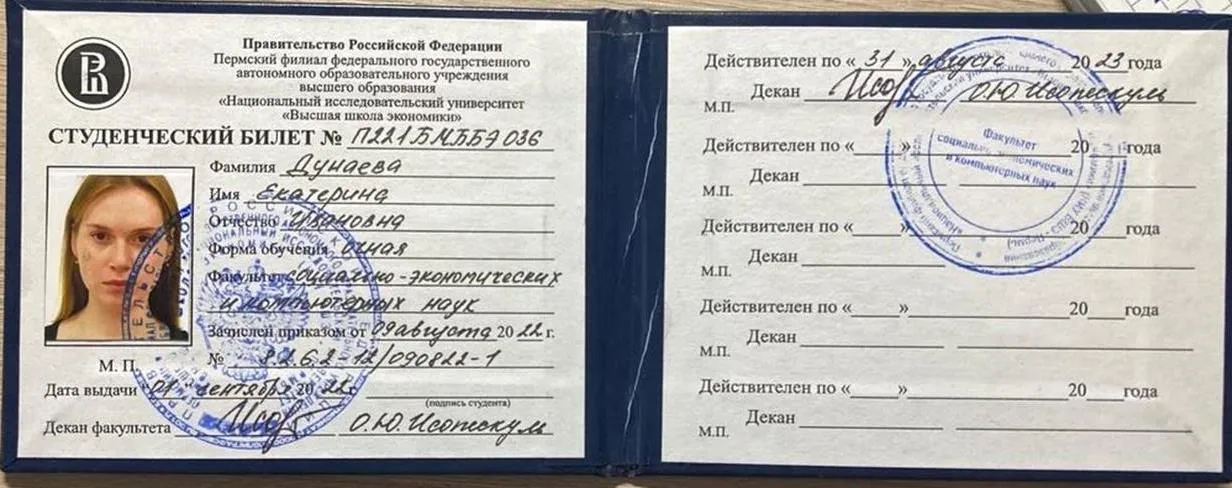 Правительство Российской Федерации
Пермский филиал федерального государственного
автономного образовательного учреждения
высшего образования
«Национальный исследовательский университет
«Высшая школа экономики»
СТУДЕНЧЕСКИЙ БИЛЕТ № П221БМББЭ036
Фамилия Дунаева
Имя Екатерина
Отчество Ивановна
Форма обучения очная
Факультет социально-экономических
и компьютерных наук
Зачислен приказом от 09 августа 20 22 г.
№ 8.2.6.2-12/090822-1
М. П.
Дата выдачи 01 сентября 20 22
(подпись студента)
Декан факультета О.Ю. Исопескуль
Действителен по « 31 » августа 20 23 года
Декан О.Ю. Исопескуль
М.П.
Факультет
социально-экономических
и компьютерных наук
Действителен по « » 20 года
Декан
М.П.
Действителен по « » 20 года
Декан
М.П.
Действителен по « » 20 года
Декан
М.П.
Действителен по « » 20 года
Декан
М.П.